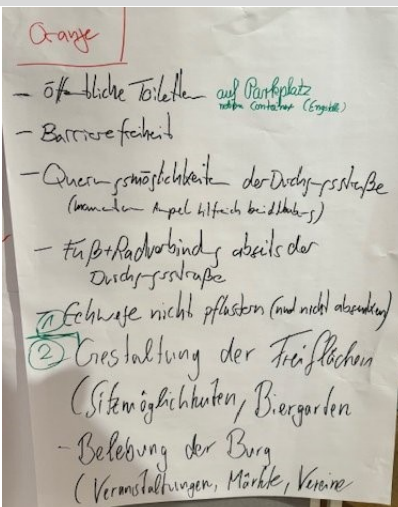 Orange
- öffentliche Toiletten auf Parkplatz
neben Container
- Barrierefreiheit
- Querungsmöglichkeiten der Durchgangsstraße
(momentan Ampel hilfreich
- Fuß+Radverbindung abseits der
Durchgangsstraße
① Gehwege nicht pflastern (und nicht absenken)
② Gestaltung der Freiflächen
(Sitzmöglichkeiten, Biergarten
- Belebung der Burg
(Veranstaltungen, Märkte, Vereine